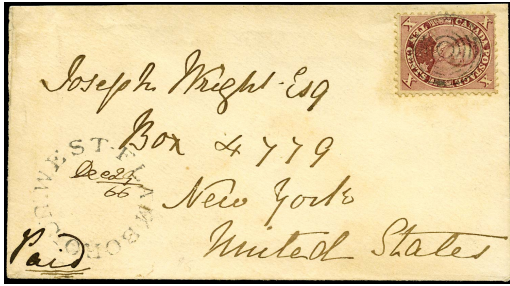 CANADA POSTAGE
TEN CENTS
X X
X X
Joseph Wright Esq
Box 4779
New York
United States
WEST-FLAMBORO
Dec 2
66
Paid